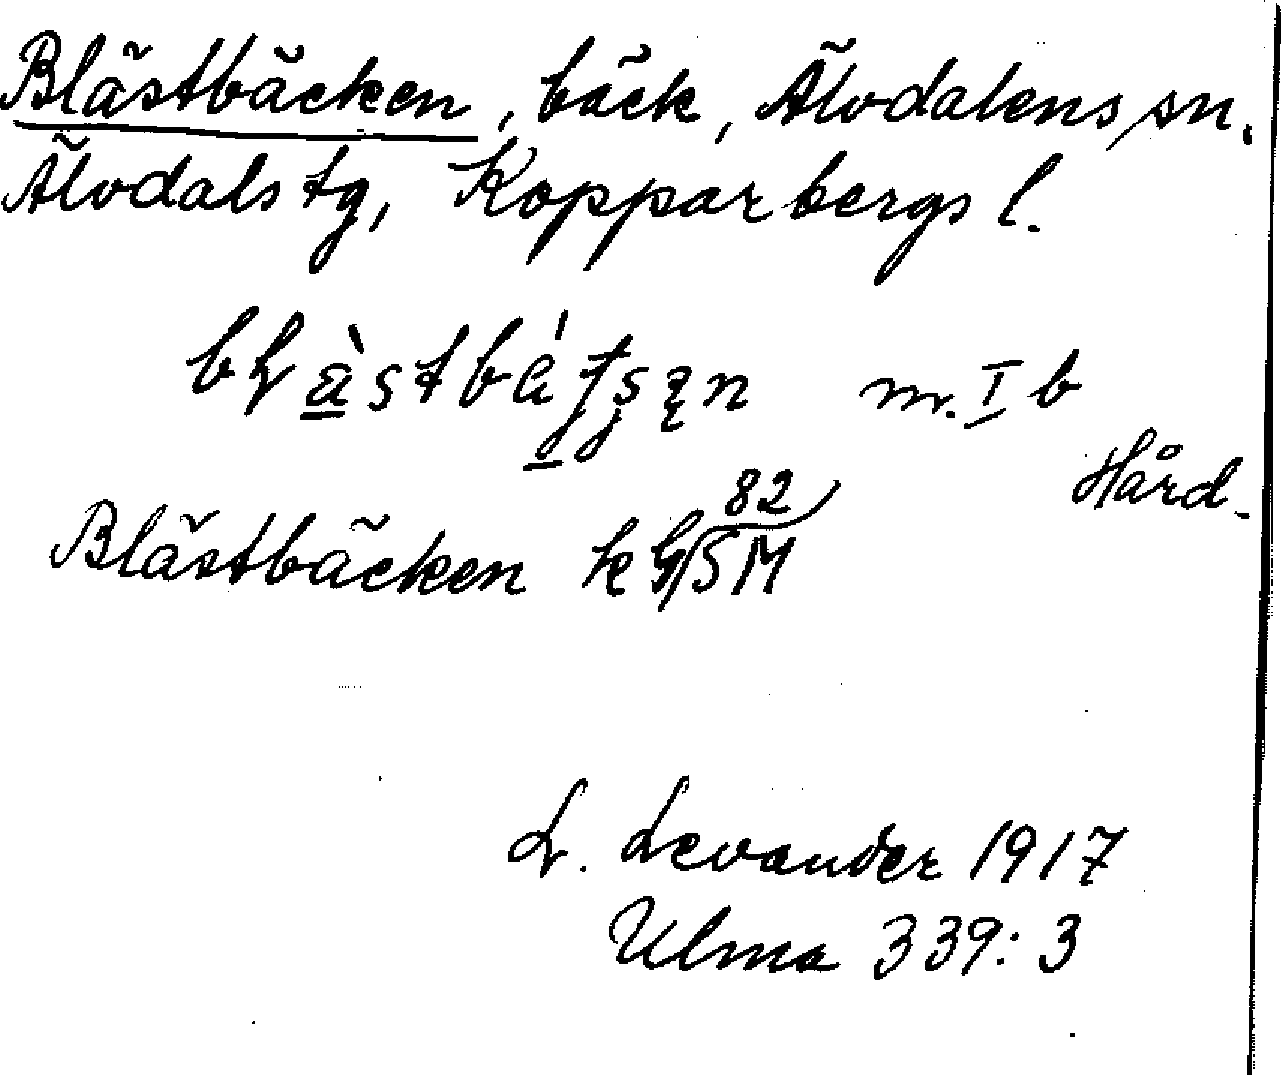 Blästbäcken, bäck, Älvdalens sn.
Älvdals tg, Kopparbergs l.
m. I b
Hård.
Blästbäcken 82 SM
L. Levander 1917
Ulma 339:3